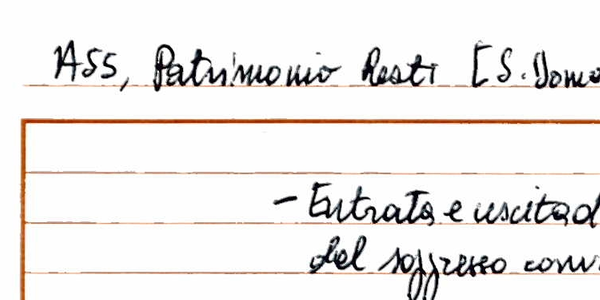 ASS, Patrimonio Resti [S. Dome
- Entrata e uscita d
del soppresso conv